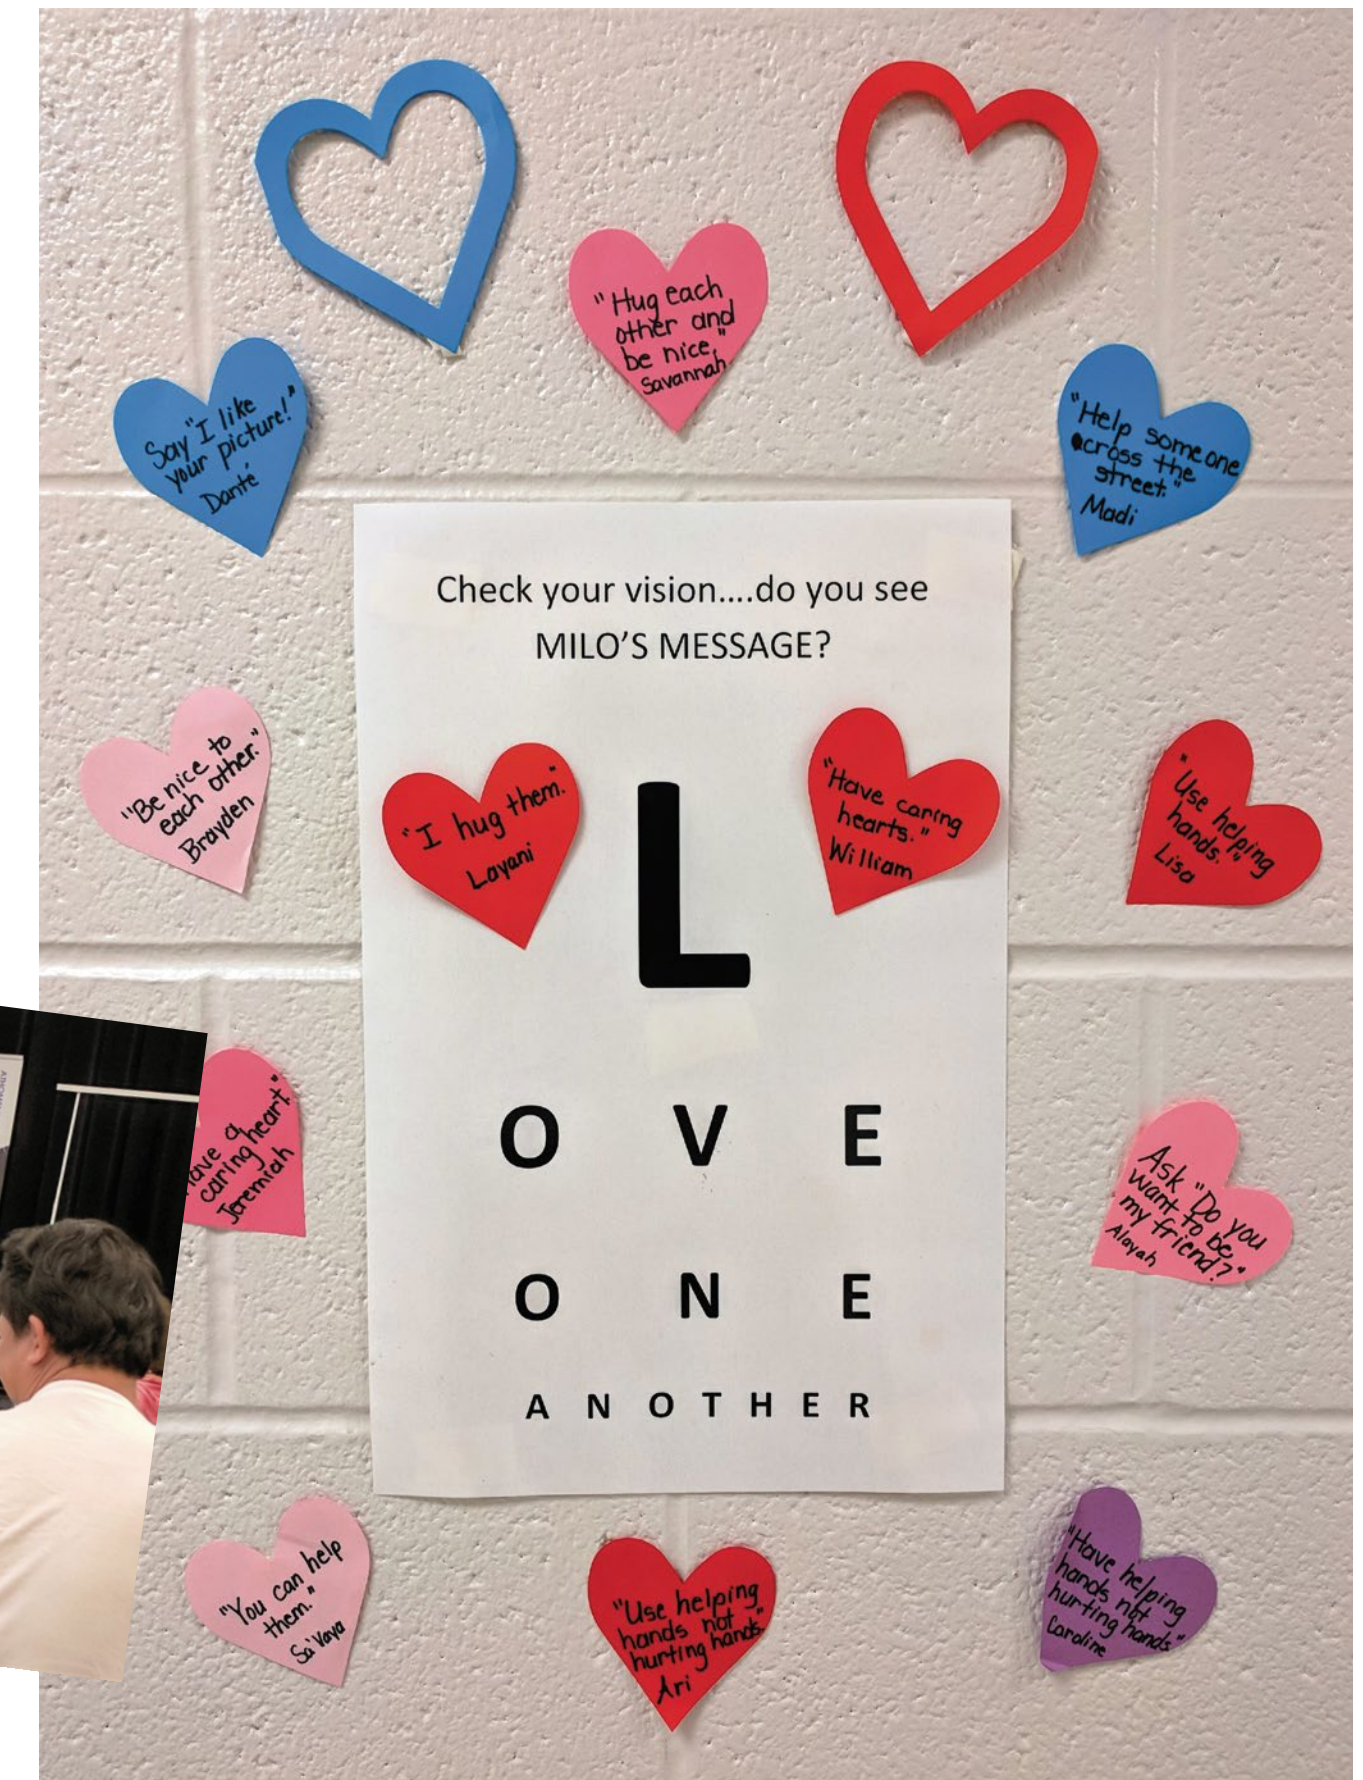 "Hug each
other and
be nice."
Savannah
Say "I like
your picture!"
Danté
"Help someone
across the
street."
Madi
Check your vision....do you see
MILO'S MESSAGE?
"Be nice to
each other."
Brayden
"I hug them."
Layani
"Have caring
hearts."
William
"Use helping
hands."
Lisa
L
O V E
O N E
A N O T H E R
a
caring heart."
Jeremiah
Ask "Do you
want to be
my friend?"
Alayah
"You can help
them."
Sa'Vaya
"Use helping
hands not
hurting hands."
Ari
"Have helping
hands not
hurting hands"
Caroline